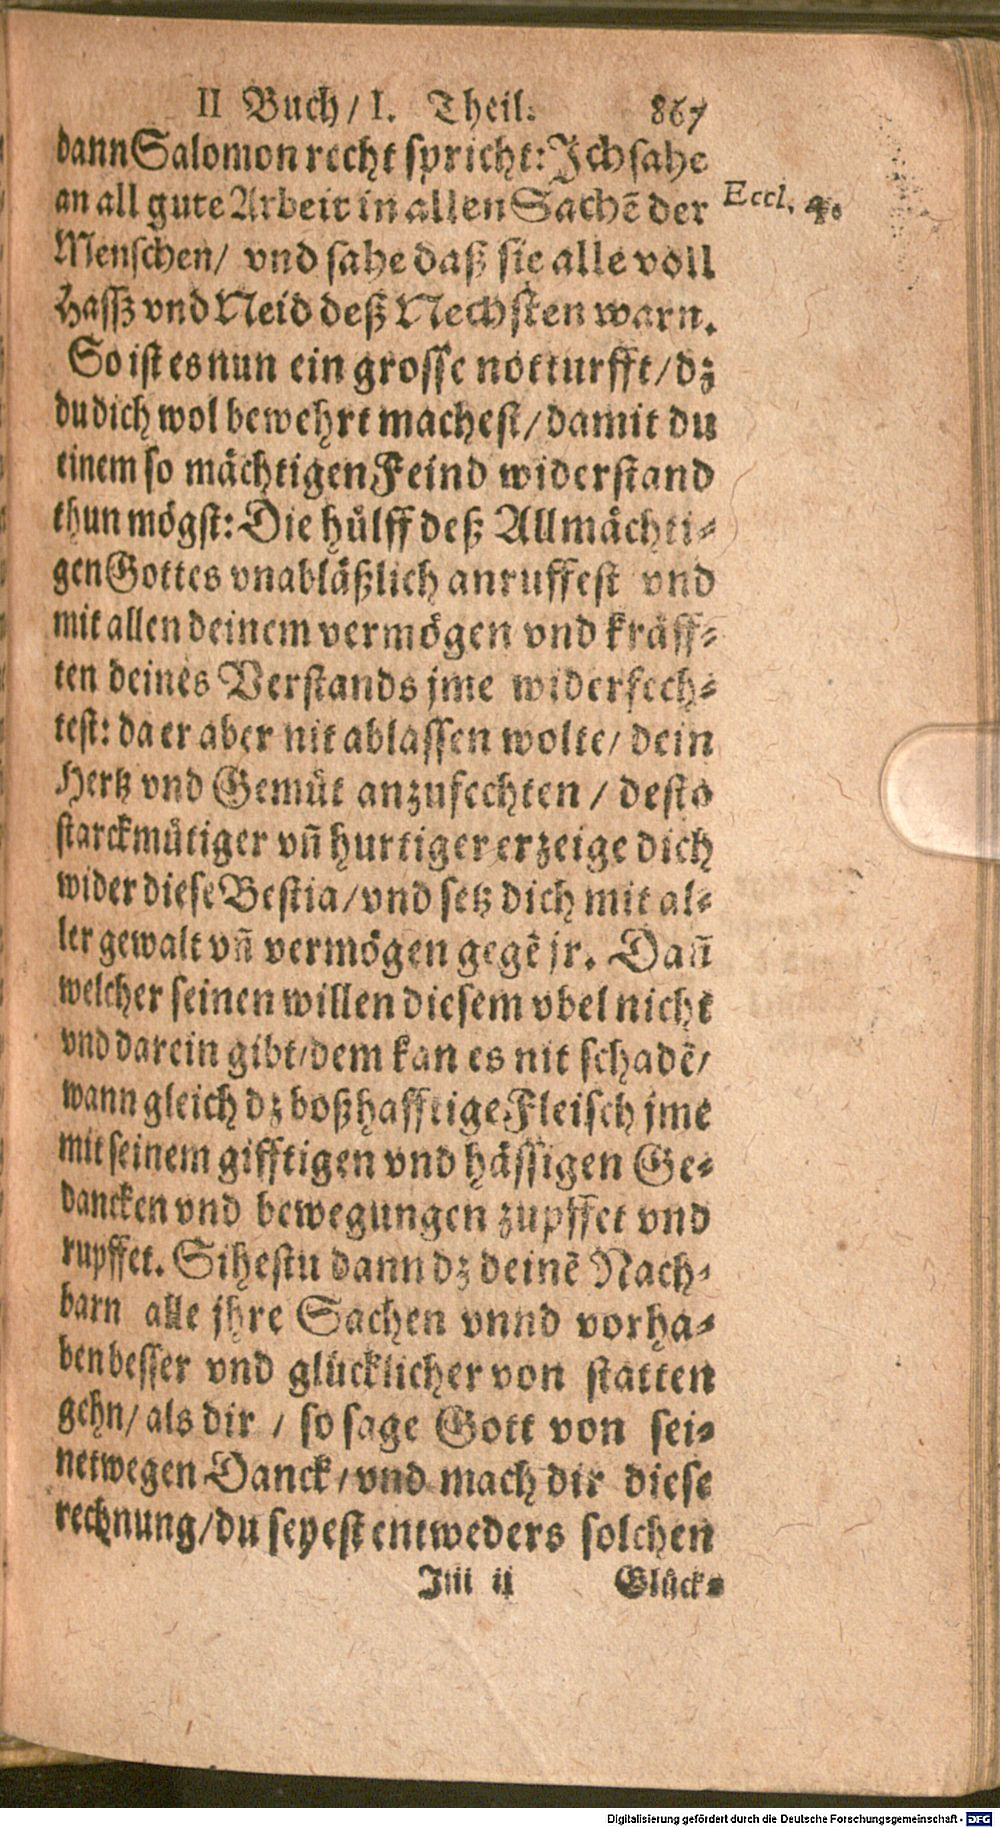 II Buch/ I. Theil. 867
dann Salomon recht spricht: Ich sahe
an all gute Arbeit in allen Sachẽ der
Eccl. 4.
Menschen/ vnd sahe daß sie alle voll
Hassz vnd Neid deß Nechsten warn.
So ist es nun ein grosse notturfft/ dz
du dich wol bewehrt machest/ damit du
einem so mächtigen Feind widerstand
thun mögst: Die hülff deß Allmächti-
gen Gottes vnabläßlich anruffest vnd
mit allen deinem vermögen vnd kräff-
ten deines Verstands jme widerfech-
test: da er aber nit ablassen wolte/ dein
Hertz vnd Gemüt anzufechten / desto
starckmütiger vñ hurtiger erzeige dich
wider diese Bestia/ vnd setz dich mit al-
ler gewalt vñ vermögen gegẽ jr. Dañ
welcher seinen willen diesem vbel nicht
vnd darein gibt/ dem kan es nit schadẽ/
wann gleich dz boßhafftige Fleisch jme
mit seinem gifftigen vnd hässigen Ge-
dancken vnd bewegungen zupffet vnd
rupffet. Sihestu dann dz deinẽ Nach-
barn alle jhre Sachen vnnd vorha-
ben besser vnd glücklicher von statten
gehn/ als dir / so sage Gott von sei-
netwegen Danck/ vnd mach dir diese
rechnung/ du seyest entweders solchen
Iiii ij Glück-
Digitalisierung gefördert durch die Deutsche Forschungsgemeinschaft - DFG